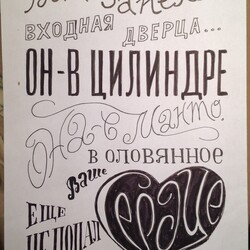 ВХОДНАЯ ДВЕРЦА...
ОН-В ЦИЛИНДРЕ
Она-в манто.
В ОЛОВЯННОЕ
Ваше
сердце
ЕЩЕ
НЕ ПОПАЛ